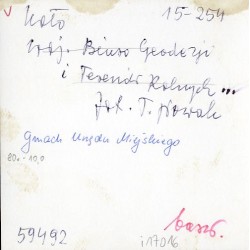 Koło 15-254
Woj. Biuro Geodezji
i Terenów Rolnych...
fot. T. Nowak
Gmach Urzędu Miejskiego
80,- 10,0
59492
i17016